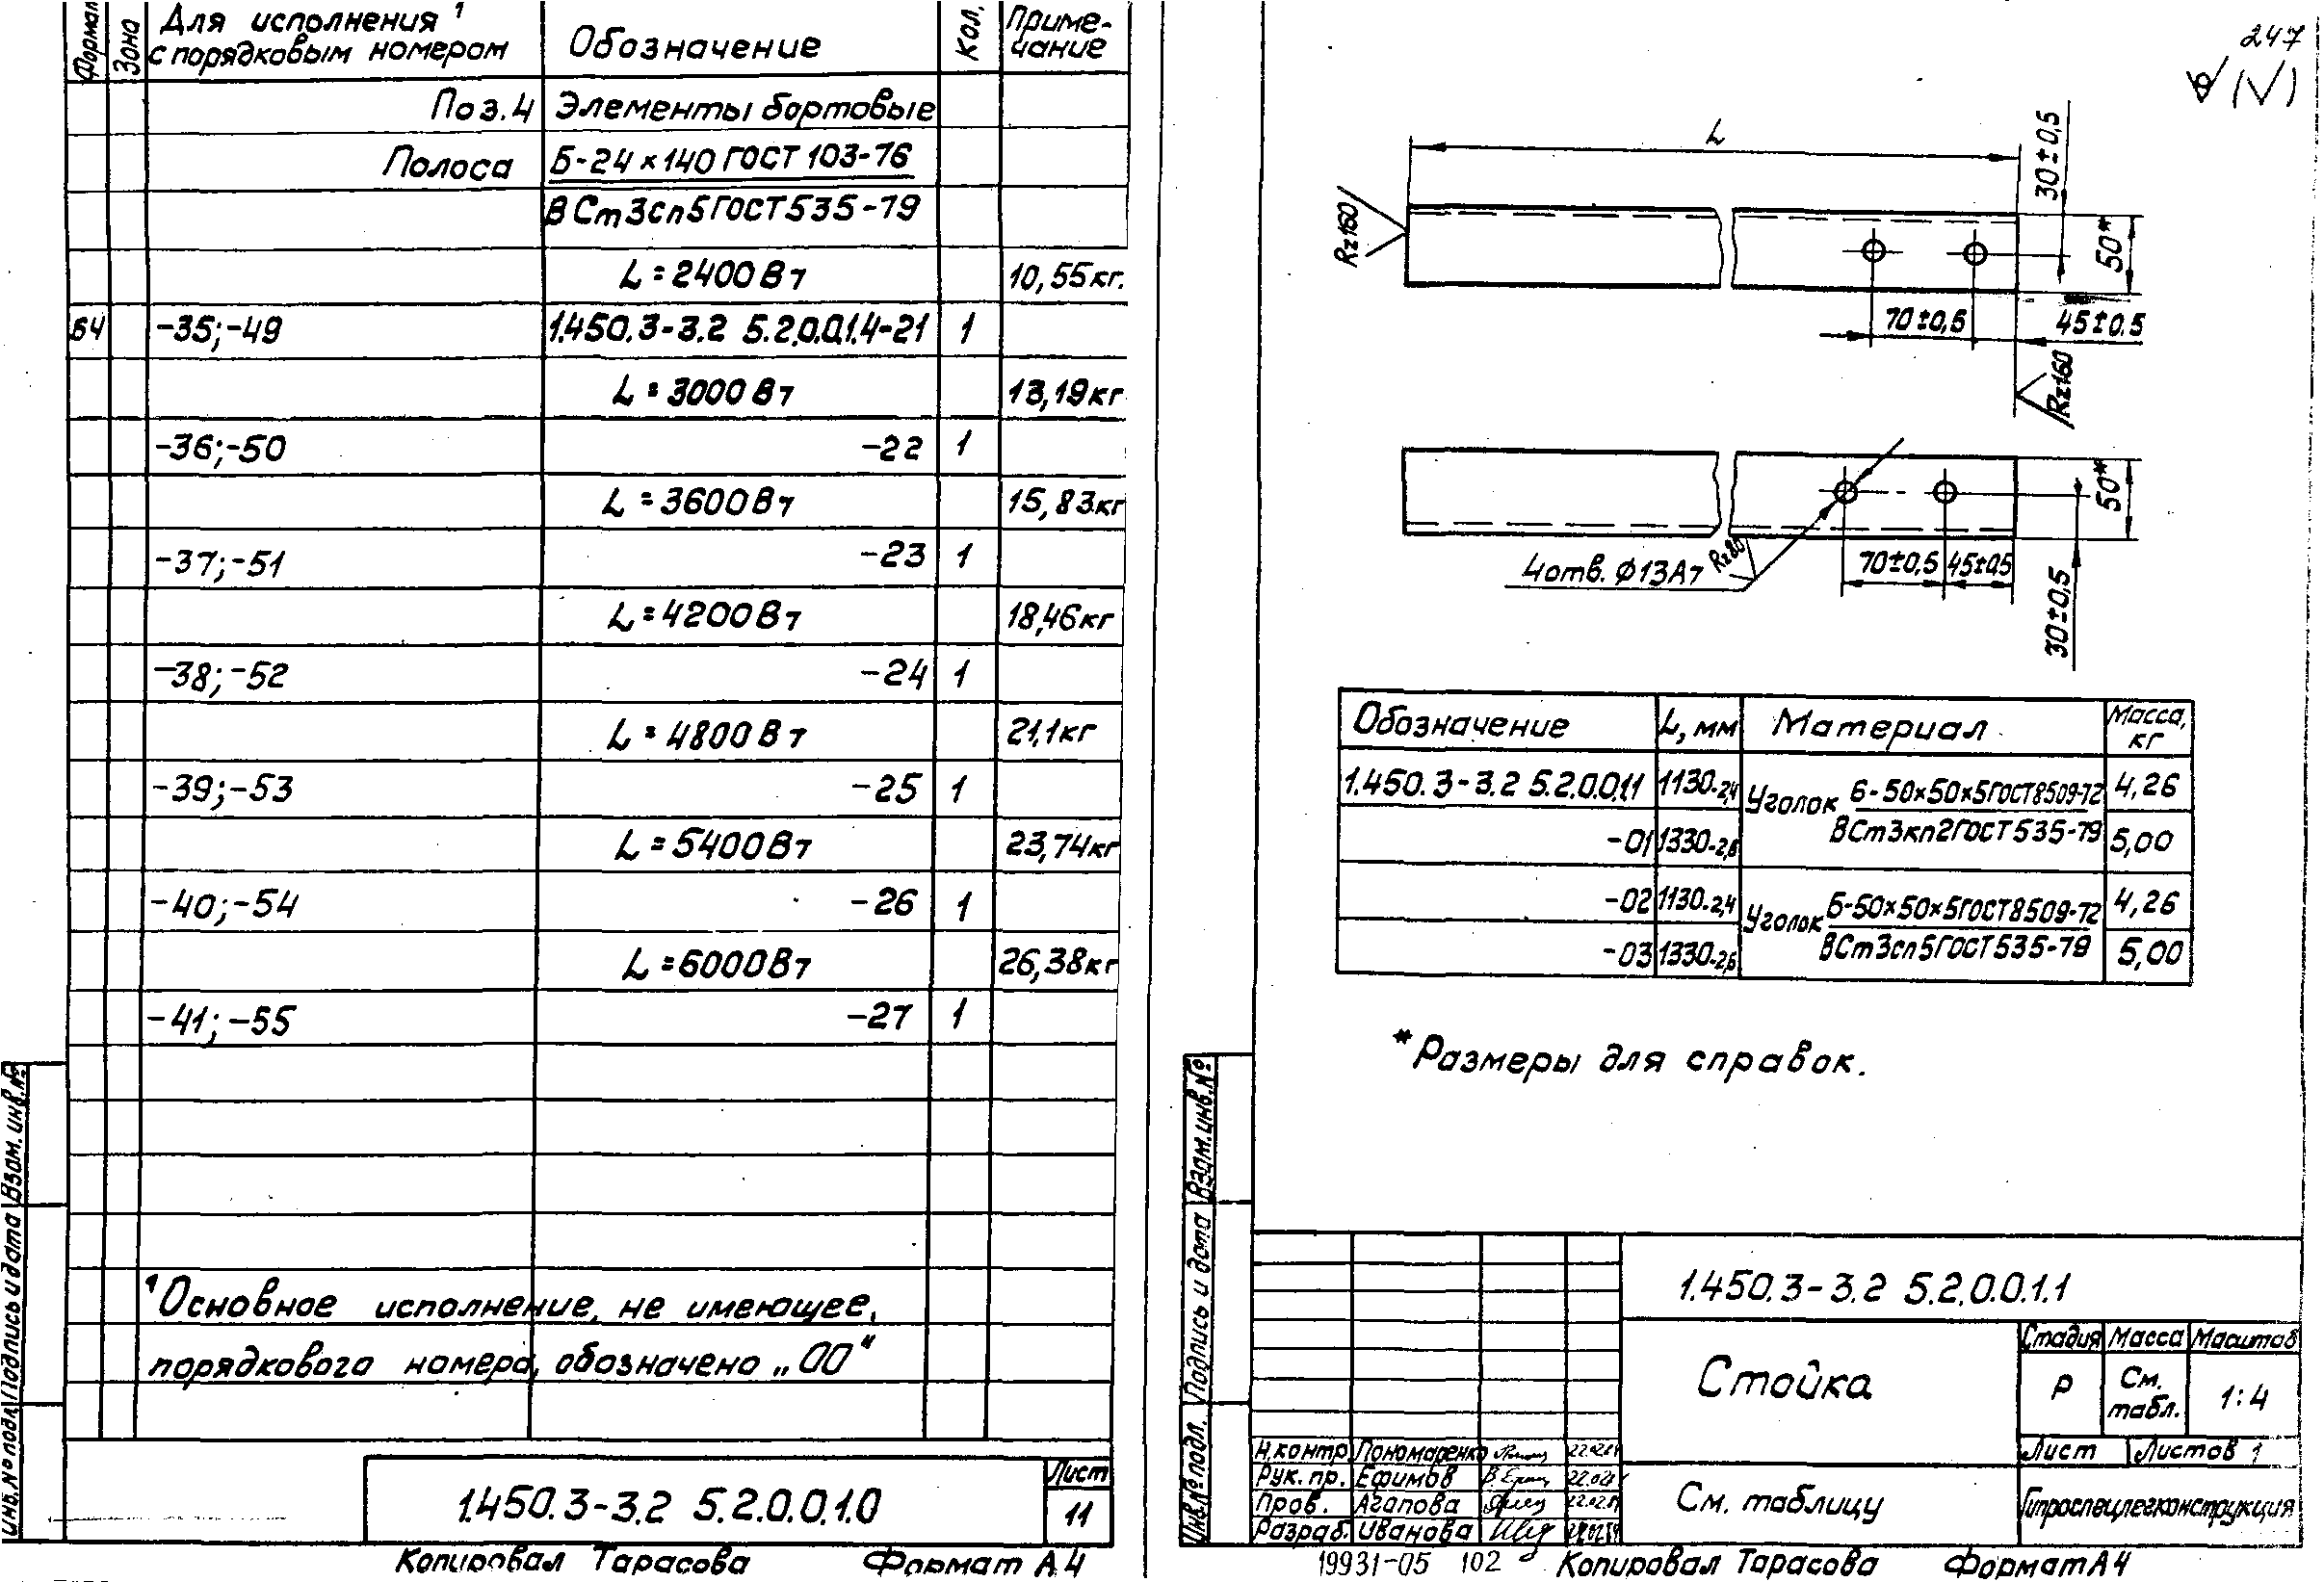 Формат
Зона
Для исполнения ¹
с порядковым номером
Обозначение
Кол.
Приме-
чание
Поз.4 Элементы бортовые
Полоса Б-24×140 ГОСТ 103-76
ВСт3сп5ГОСТ535-79
L=2400Вт 10,55кг.
64 -35;-49 1.450.3-3.2 5.2.0.0.1.4-21 1
L=3000Вт 13,19кг
-36;-50 -22 1
L=3600Вт 15,83кг
-37;-51 -23 1
L=4200Вт 18,46кг
-38;-52 -24 1
L=4800Вт 21,1кг
-39;-53 -25 1
L=5400Вт 23,74кг
-40;-54 -26 1
L=6000Вт 26,38кг
-41;-55 -27 1
¹Основное исполнение, не имеющее,
порядкового номера, обозначено „00"
Инв.№ подл. Подпись и дата Взам.инв.№
1.450.3-3.2 5.2.0.0.1.0
Лист
11
Копировал Тарасова Формат А4
247
(√)
L
30±0,5
Rz160
50*
70±0,5
45±0.5
Rz160
50*
4отв. ϕ13Ат
Rz80
70±0,5
45±0,5
30±0,5
Обозначение L, мм Материал Масса, кг
1.450.3-3.2 5.2.0.0.1.1 1130-2,4 Уголок Б-50×50×5ГОСТ8509-72 4,26
ВСт3кп2ГОСТ535-79
-01 1330-2,6 5,00
-02 1130-2,4 Уголок Б-50×50×5ГОСТ8509-72 4,26
ВСт3сп5ГОСТ535-79
-03 1330-2,6 5,00
*Размеры для справок.
Инв.№ подл. Подпись и дата Взам.инв.№
1.450.3-3.2 5.2.0.0.1.1
Стойка
Стадия Масса Масштаб
Р См. табл. 1:4
Лист Листов 1
Н.контр. Пономаренко
Рук. пр. Ефимов
Пров. Агапова
Разраб. Иванова
См. таблицу
Гипроспецлегконструкция
19931-05 102 Копировал Тарасова Формат А4